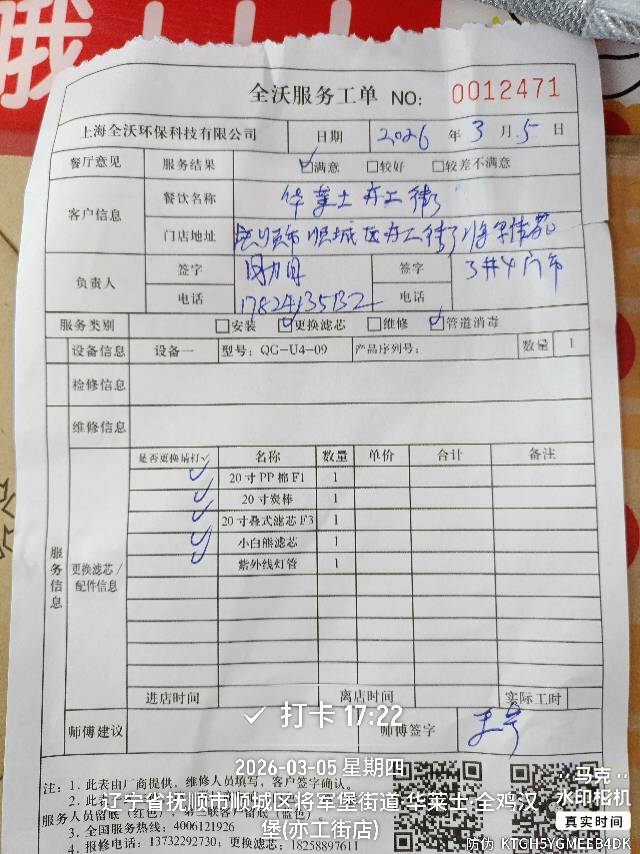 全沃服务工单 NO: 0012471
上海全沃环保科技有限公司 日期 2026 年 3 月 5 日
餐厅意见 服务结果 ☑满意 □较好 □较差不满意
客户信息 餐饮名称 华莱士 亦工街
门店地址 顺城区亦工街将军
3#4门市
负责人 签字 签字
电话 17824135132 电话
服务类别 □安装 ☑更换滤芯 □维修 ☑管道消毒
设备信息 设备一 型号: QG-U4-09 产品序列号: 数量 1
检修信息
维修信息
服务信息
更换滤芯/配件信息
是否更换请打✓ 名称 数量 单价 合计 备注
✓ 20寸PP棉F1 1
✓ 20寸炭棒 1
✓ 20寸叠式滤芯F3 1
✓ 小白熊滤芯 1
✓ 紫外线灯管 1
进店时间 离店时间 实际工时
师傅建议 师傅签字
✓ 打卡 17:22
2026-03-05 星期四
辽宁省抚顺市顺城区将军堡街道·华莱士·全鸡汉堡(亦工街店)
注: 1. 此表由厂商提供,维修人员填写,客户签字确认。
3. 全国服务热线: 4006121926
4. 报修电话: 13732292730; 更换滤芯: 18258897611
马克
水印相机
真实时间
防伪 KTGH5YGMEEB4DK